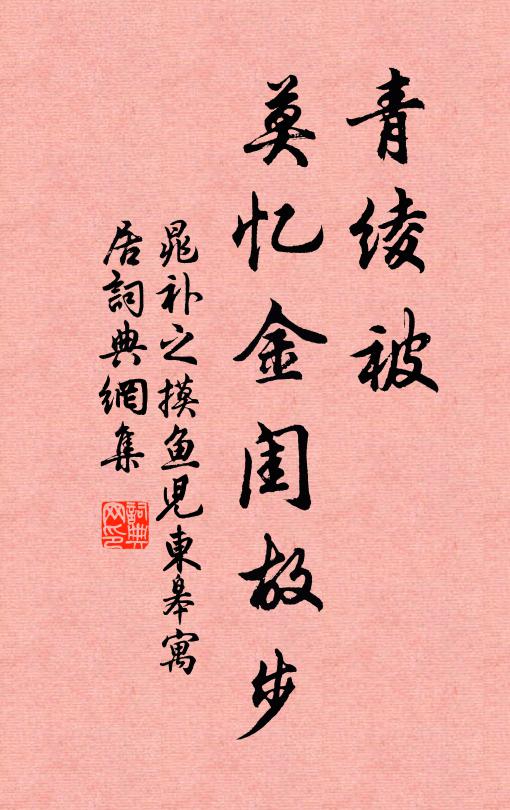 青绫被
莫忆金闺故步
晁补之摸鱼児東皋寓
居詞典網集
詞典网印